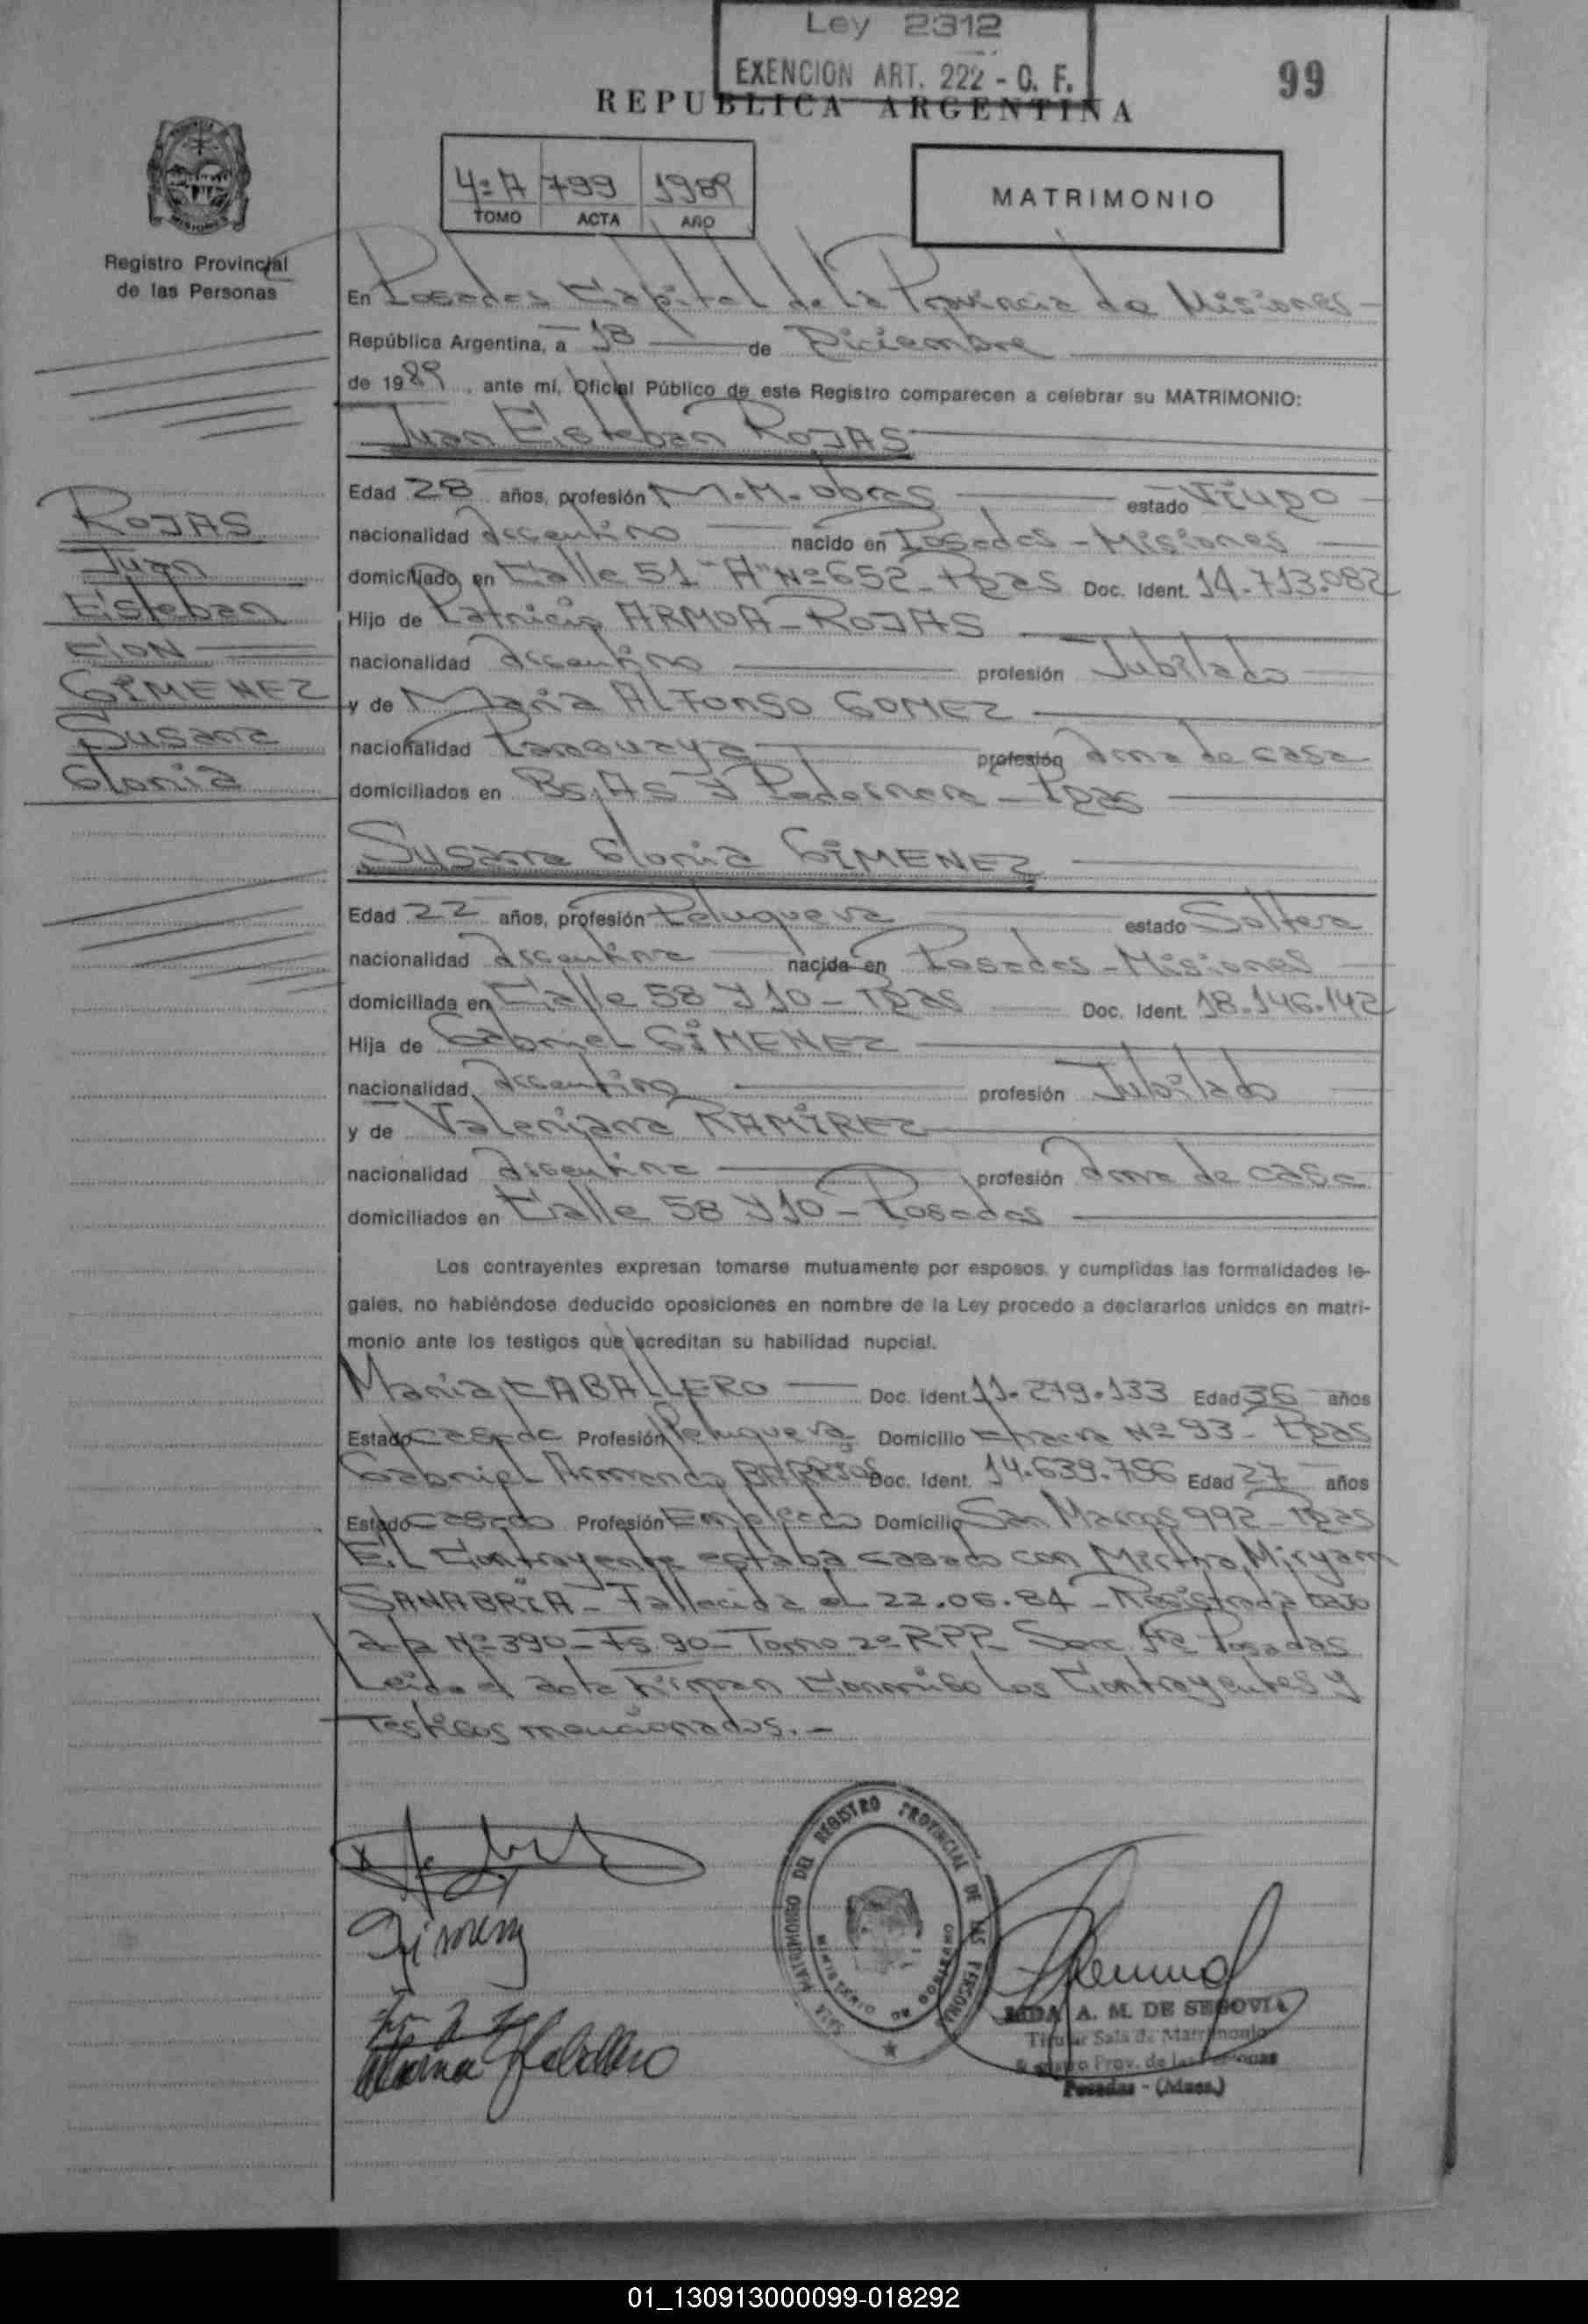 Ley 2312
EXENCION ART. 222 - C. F.
99
REPUBLICA ARGENTINA
4º A 799 1989
TOMO ACTA AÑO
MATRIMONIO
MISIONES
Registro Provincial
de las Personas
En Posadas Capital de la Provincia de Misiones
República Argentina, a 18 de Diciembre
de 1989, ante mí, Oficial Público de este Registro comparecen a celebrar su MATRIMONIO:
Juan Esteban ROJAS
ROJAS
Juan
Esteban
CON
GIMENEZ
Susana
Gloria
Edad 28 años, profesión M.M. obras estado Viudo
nacionalidad Argentino nacido en Posadas - Misiones
domiciliado en Calle 51 "A" Nº 652 - Pdas Doc. Ident. 14.713.082
Hijo de Patricio ARMOA - ROJAS
nacionalidad Argentino profesión Jubilado
y de Maria ALFONSO GOMEZ
nacionalidad Paraguaya profesión Ama de casa
domiciliados en Bs. As y Pedernera - Pdas
Susana Gloria GIMENEZ
Edad 22 años, profesión Peluquera estado Soltera
nacionalidad Argentina nacida en Posadas - Misiones
domiciliada en Calle 58 y 10 - Pdas Doc. Ident. 18.146.142
Hija de Gabriel GIMENEZ
nacionalidad Argentino profesión Jubilado
y de Valeriana RAMIREZ
nacionalidad Argentina profesión Ama de casa
domiciliados en Calle 58 y 10 - Posadas
Los contrayentes expresan tomarse mutuamente por esposos, y cumplidas las formalidades le-
gales, no habiéndose deducido oposiciones en nombre de la Ley procedo a declararlos unidos en matri-
monio ante los testigos que acreditan su habilidad nupcial.
Maria CABALLERO Doc. Ident. 11.279.133 Edad 36 años
Estado casada Profesión Peluquera Domicilio Chacra Nº 93 - Pdas
Gabriel Armando BARRIOS Doc. Ident. 14.639.786 Edad 27 años
Estado casado Profesión Empleado Domicilio San Marcos 992 - Pdas
El Contrayente estaba casado con Mirtha Miryam
SANABRIA - Fallecida el 22.06.84 - Registrada bajo
acta Nº 390 - Fs 90 - Tomo 2º RPP. Secc. 1ra Posadas
Leida el acta firman conmigo los Contrayentes y
Testigos mencionados. -
Gimenez
Maria Caballero
SALA MATRIMONIO DEL REGISTRO PROVINCIAL DE LAS PERSONAS
MINISTERIO DE GOBIERNO
A. M. DE SEGOVIA
Titular Sala de Matrimonio
Registro Prov. de las Personas
Posadas - (Mnes.)
01_130913000099-018292